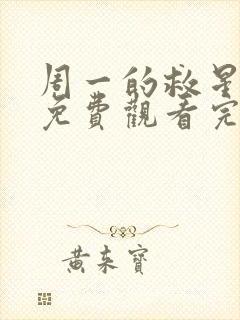 周一的救星
免費觀看完
黃來寶